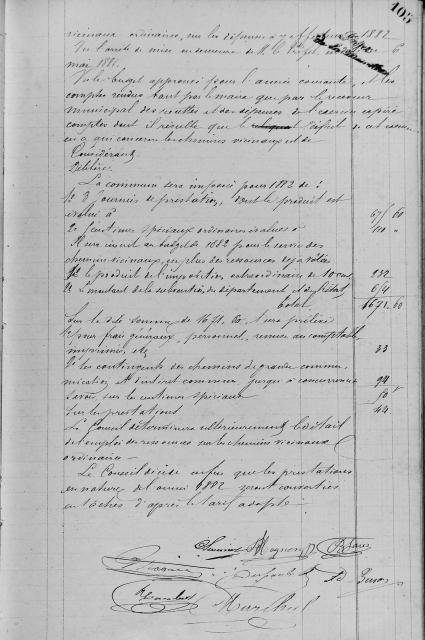 105
vicinaux ordinaires, sur les dépenses à y effectuer en 1882
Vu l'arrêté de mise en demeure de M. le Préfet 6
mai 1881.
Vu le budget approuvé pour l'année courante, et les
comptes rendus tant par le maire que par le receveur
municipal des recettes et des dépenses de l'exercice expiré
comptes dont il résulte que le déficit de cet exercice
en ce qui concerne les chemins vicinaux est de
Considérant
Délibère
La commune sera imposée pour 1882 de :
1o 3 journées de prestation, dont le produit est
évalué à 671 60
2o centimes spéciaux ordinaires évalués à 110 "
Il sera inscrit au budget de 1882 pour le service des
chemins vicinaux, en plus des ressources déjà votées
1o le produit de l'imposition extraordinaire de 232
2o le montant de la subvention du département et de l'état
total 60
Sur la dite somme de il sera prélevé
1o pour frais généraux, personnel, remise au comptable,
imprimés, etc 33
2o les contingents des chemins de grande commu
nication et d'intérêt commun jusqu'à concurrence 94
savoir, sur les centimes spéciaux 50
sur les prestations 44
Le Conseil déterminera ultérieurement le détail
de l'emploi des ressources sur les chemins vicinaux
ordinaires
Le Conseil décide enfin que les prestations
en nature de l'année 1882 seront converties
en tâches d'après le tarif adopté
Maréchal